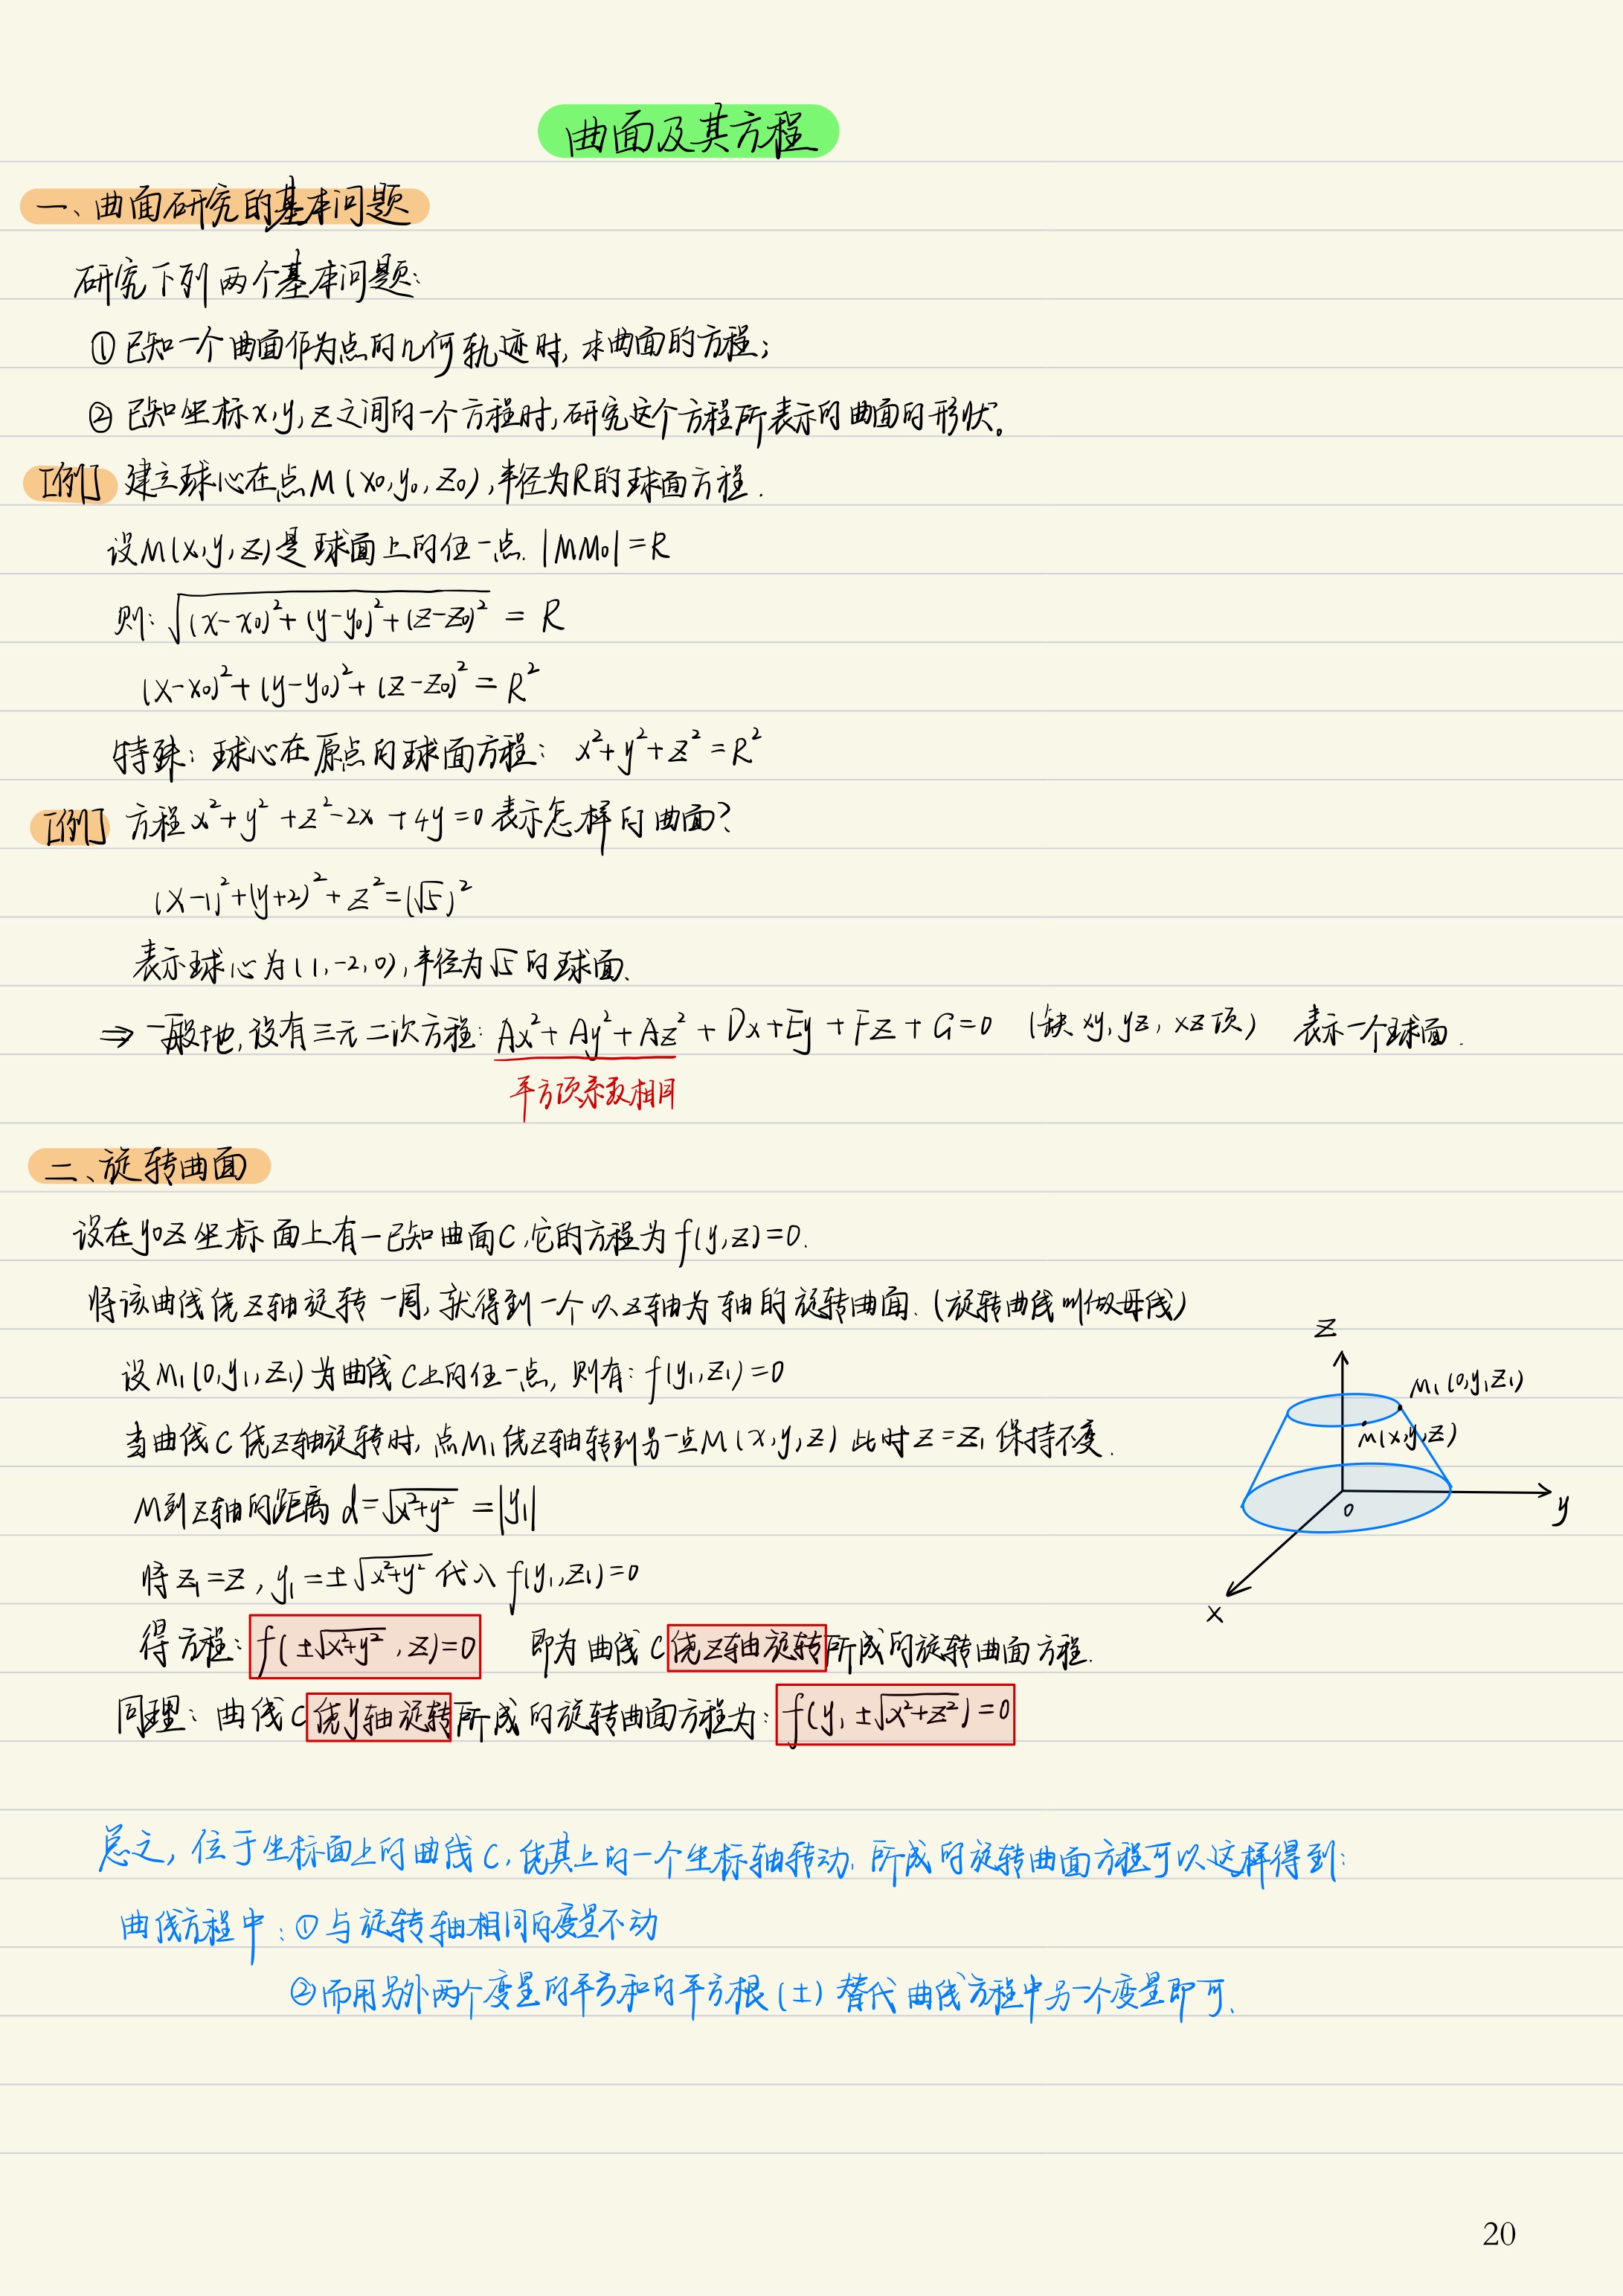 曲面及其方程
一、曲面研究的基本问题
研究下列两个基本问题:
① 已知一个曲面作为点的几何轨迹时, 求曲面的方程;
② 已知坐标x,y,z之间的一个方程时,研究这个方程所表示的曲面的形状。
[例] 建立球心在点M(x₀,y₀,z₀),半径为R的球面方程.
设M(x,y,z)是球面上的任一点. |MM₀|=R
则: √((x-x₀)²+(y-y₀)²+(z-z₀)²) = R
(x-x₀)²+(y-y₀)²+(z-z₀)²=R²
特殊: 球心在原点的球面方程: x²+y²+z²=R²
[例] 方程x²+y²+z²-2x+4y=0表示怎样的曲面?
(x-1)²+(y+2)²+z²=(√5)²
表示球心为(1,-2,0),半径为√5的球面.
⇒ 一般地,设有三元二次方程: Ax²+Ay²+Az²+Dx+Ey+Fz+G=0 (缺xy,yz,xz项) 表示一个球面.
平方项系数相同
二、旋转曲面
设在yoz坐标面上有一已知曲面C,它的方程为f(y,z)=0.
将该曲线绕z轴旋转一周,就得到一个以z轴为轴的旋转曲面.(旋转曲线叫做母线)
设M₁(0,y₁,z₁)为曲线C上的任一点, 则有: f(y₁,z₁)=0
当曲线C绕z轴旋转时, 点M₁绕z轴转到另一点M(x,y,z) 此时z=z₁保持不变.
M到z轴的距离 d=√(x²+y²)=|y₁|
将z₁=z, y₁=±√(x²+y²) 代入 f(y₁,z₁)=0
得方程: f(±√(x²+y²), z)=0 即为曲线C绕z轴旋转所成的旋转曲面方程.
同理: 曲线C绕y轴旋转所成的旋转曲面方程为: f(y, ±√(x²+z²))=0
z
M₁(0,y₁,z₁)
M(x,y,z)
o
y
x
总之, 位于坐标面上的曲线C,绕其上的一个坐标轴转动,所成的旋转曲面方程可以这样得到:
曲线方程中: ① 与旋转轴相同的变量不动
② 而用另外两个变量的平方和的平方根(±)替代曲线方程中另一个变量即可.
20